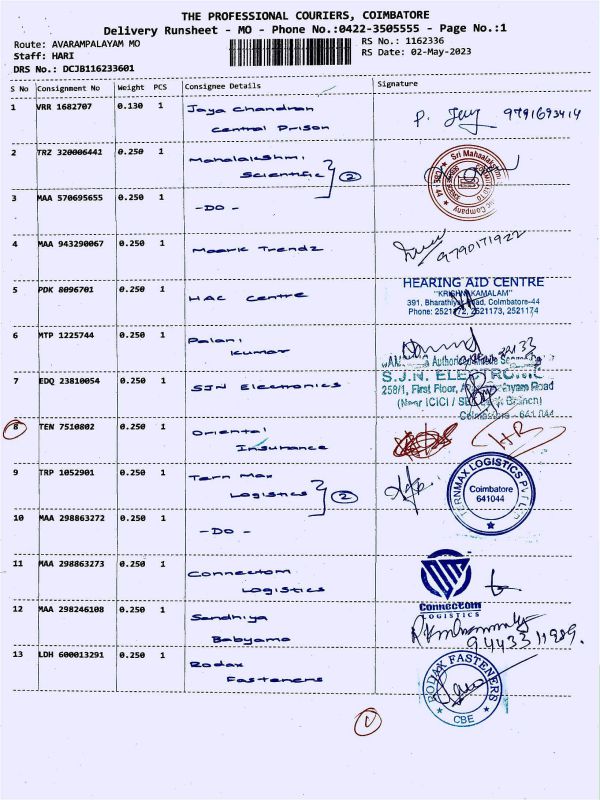 THE PROFESSIONAL COURIERS, COIMBATORE
Delivery Runsheet - MO - Phone No.:0422-3505555 - Page No.:1
Route: AVARAMPALAYAM MO
RS No.: 1162336
Staff: HARI
RS Date: 02-May-2023
DRS No.: DCJB116233601
S No Consignment No Weight PCS Consignee Details Signature
1 VRR 1682707 0.130 1 Jaya Chandran
Central Prison
P. 9791693414
2 TRZ 320006441 0.250 1 Mahalakshmi
Scientific 2
Sri Mahaalakshmi
3 MAA 570695655 0.250 1 -DO-
4 MAA 943290067 0.250 1 Maark Trendz
9790171922
5 PDK 8096701 0.250 1 HAC Centre
HEARING AID CENTRE
"KRISHNAKAMALAM"
391, Bharathiyar Road, Coimbatore-44
Phone: 2521172, 2521173, 2521174
6 MTP 1225744 0.250 1 Palani
Kumar
7 EDQ 23810054 0.250 1 SJN Electronics
S.J.N. ELECTRONIC
258/1, First Floor,
(Near ICICI / Branch)
Coimbatore - 641 044
8 TEN 7510802 0.250 1 Oriental
Insurance
9 TRP 1052901 0.250 1 Tern Max
Logistics 2
TERNMAX LOGISTICS PVT LTD
Coimbatore
641044
10 MAA 298863272 0.250 1 -DO-
11 MAA 298863273 0.250 1 Connectom
Logistics
Connectcom
LOGISTICS
12 MAA 298246108 0.250 1 Sandhiya
Babyama
9443311989.
13 LDH 600013291 0.250 1 Rodax
Fasteners
RODAX FASTENERS
CBE
1